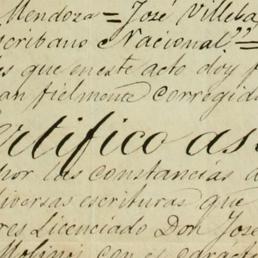 Mendoza = José Villeba
scribano Nacional =
es que en este acto doy f
an fielmente corregid
ertifico as
por las constancias a
diversas escrituras que
res Licenciado Don Jose
Molina con es carácte